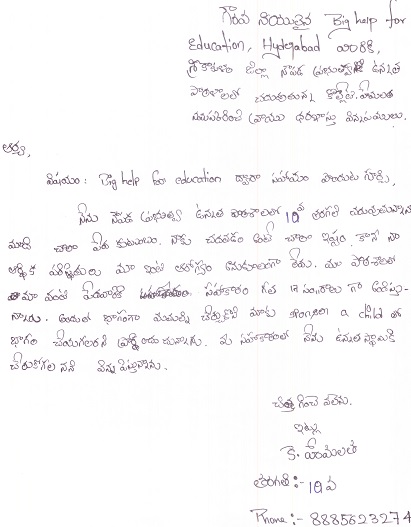 గౌరవనీయులైన Big help for
Education, Hyderabad వారికి,
శ్రీకాకుళం జిల్లా నౌపడ ప్రభుత్వ ఉన్నత
పాఠశాలలో చదువుతున్న
వ్రాయు దరఖాస్తు విన్నపములు.
ఆర్య,
విషయం : Big help for education ద్వారా సహాయం పొందుట గూర్చి,
నేను నౌపడ ప్రభుత్వ ఉన్నత పాఠశాలలో 10వ తరగతి చదువుచున్నాను
మాది చాలా పేద కుటుంబం. నాకు చదవడం అంటే చాలా ఇష్టం. కానీ నా
ఆర్థిక పరిస్థితులు మా ఇంటి ఆరోగ్యం అనుకూలంగా లేదు. మా పాఠశాలలో
మా వంటి పేదవారికి సహకారం గత సం,రాలు గా
అందులో భాగంగా మమ్మల్ని చేర్చుకొని మాకు sponsor a child లో
భాగం చేయగలరని ప్రార్థించుచున్నాను. మీ సహకారంతో నేను ఉన్నత స్థాయికి
చేరుకోగలనని
చిత్తగించవలెను.
ఇట్లు
కె. హేమలత
తరగతి :- 10వ
Phone :- 8885623274